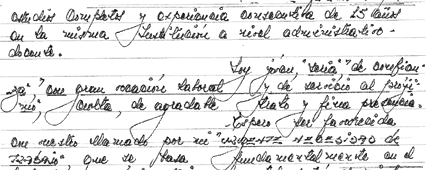 estudios completos y experiencia consecutiva de 15 años
en la misma Institución a nivel administrativo-
docente.
Soy joven, "seria" de confian-
za, con gran vocación laboral y de servicio al próji-
mo, culta, de agradable trato y fina presencia.
Espero ser favorecida
con vuestro llamado por mi
que se basa fundamentalmente en el